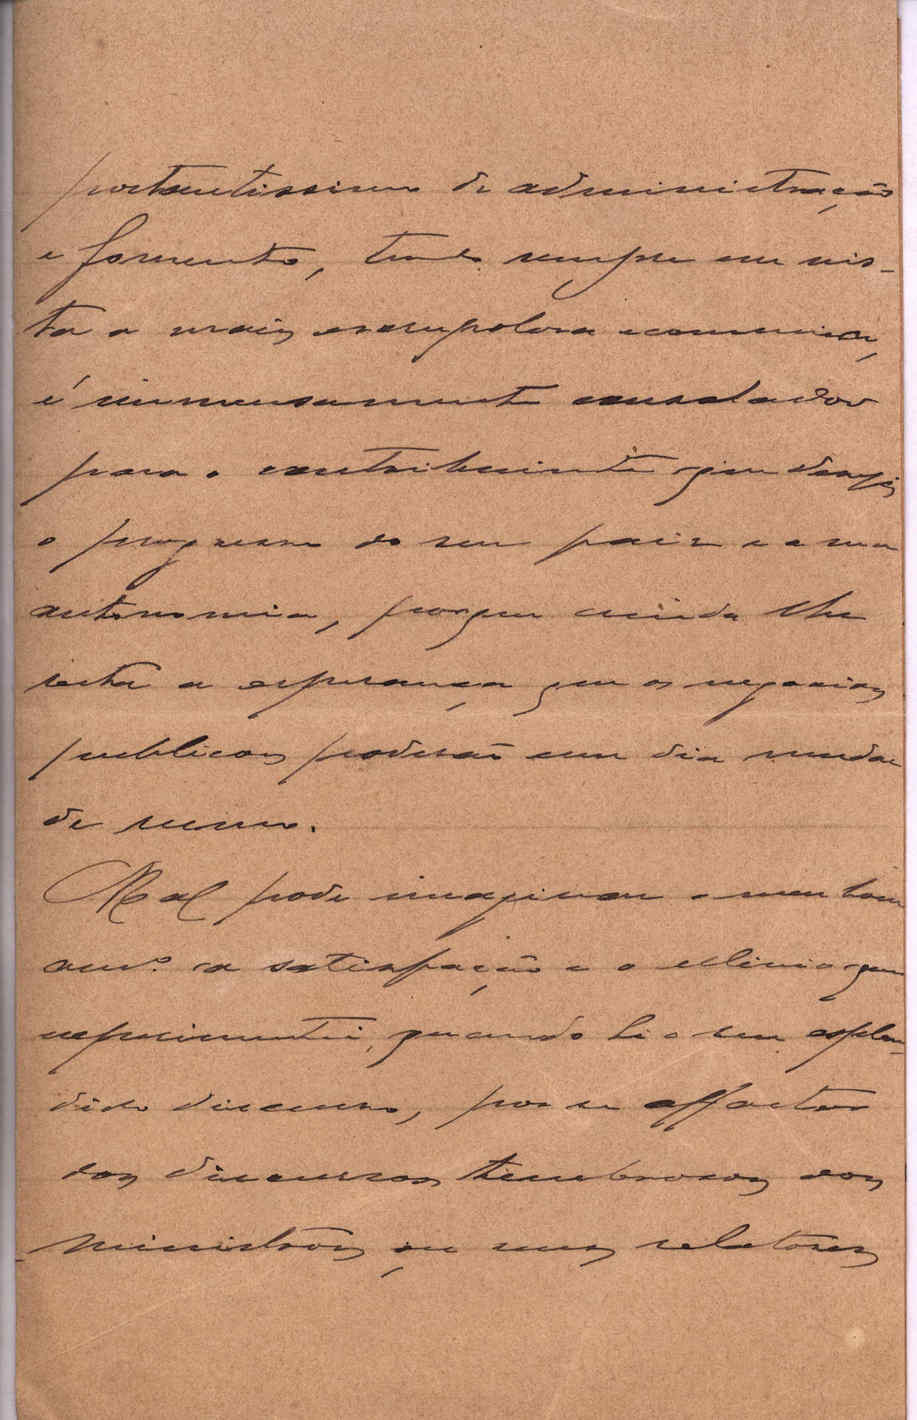 portantissimo de administração
e fomento, tendo sempre em vis-
ta a mais escrupolosa economia,
é immensamente consolador
para o contribuinte que deseja
o progresso do seu paiz e a sua
autonomia, porque ainda lhe
resta a esperança que os negocios
publicos poderão um dia mudar
de rumo.
Mal pode imaginar o meu bom
amº. a satisfação e o que
experimentei, quando li o seu esplen-
dido discurso, por se affastar
dos discursos tenebrosos dos
ministros, ou seus relatores